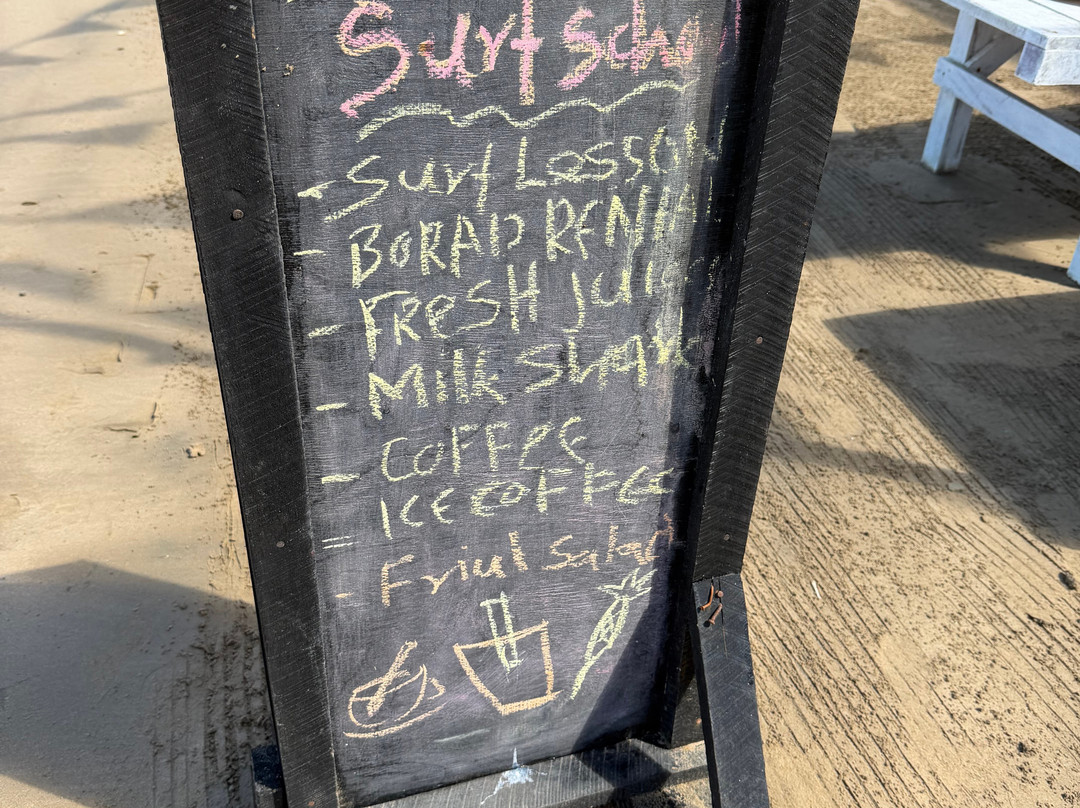 Surf School
- Surf Losson
- BORAD RENTAl
- FResH juic
- Milk Shake
- COFFEE
= ICE COFFee
- Friut Salad